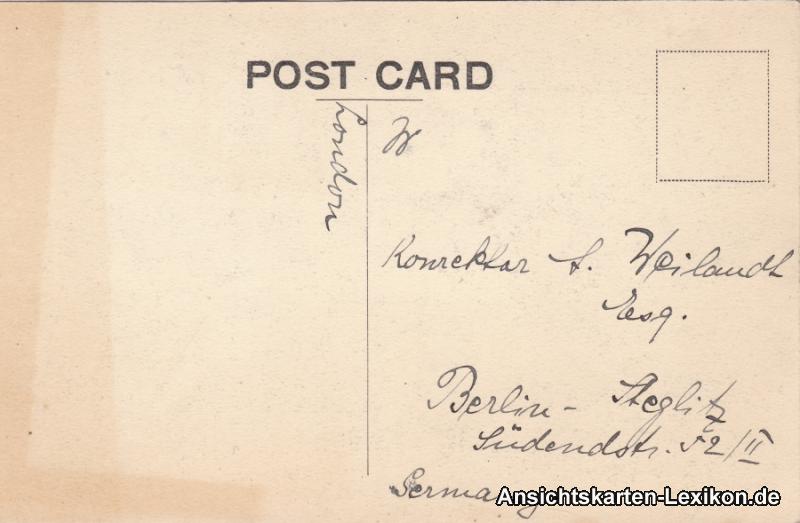 POST CARD
London
W
Konrektor A. Weilandt
Esq.
Berlin- Steglitz
Südendstr. 52/II
Germany
Ansichtskarten-Lexikon.de